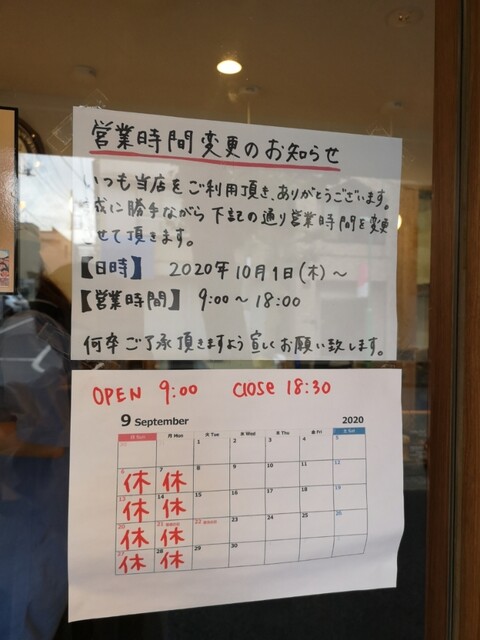 営業時間変更のお知らせ
いつも当店をご利用頂き、ありがとうございます。
誠に勝手ながら下記の通り営業時間を変更
させて頂きます。
【日時】 2020年10月1日(木)～
【営業時間】 9:00～18:00
何卒ご了承頂きますよう宜しくお願い致します。
OPEN 9:00 Close 18:30
9 September 2020
日 Sun 月 Mon 火 Tue 水 Wed 木 Thu 金 Fri 土 Sat
1 2 3 4 5
6 休 7 休 8 9 10 11 12
13 休 14 休 15 16 17 18 19
20 休 21 休 22 23 24 25 26
27 休 28 休 29 30